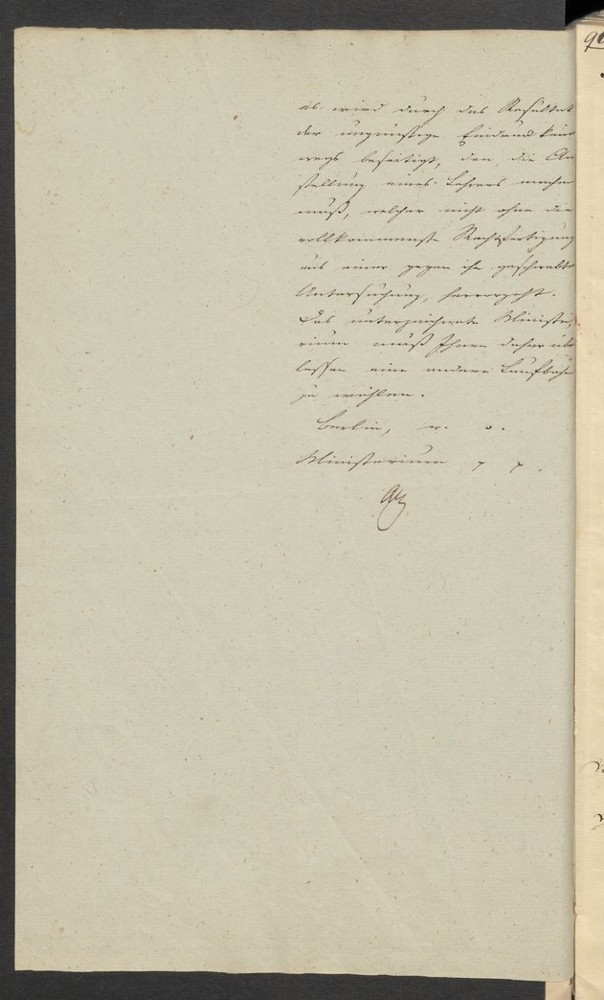 es wird durch das Resultat
der ungünstige Eindruck kei-
wegs beseitigt, den die An-
stellung eines Lehrers machen
muß, welcher nicht ohne die
vollkommenste Rechtfertigung
aus einer gegen ihn geschwebten
Untersuchung, hervorgeht.
Das unterzeichnete Ministe-
rium muß Ihnen daher über-
lassen eine andere Laufbahn
zu wählen.
Berlin, u. s.
Ministerium p p.